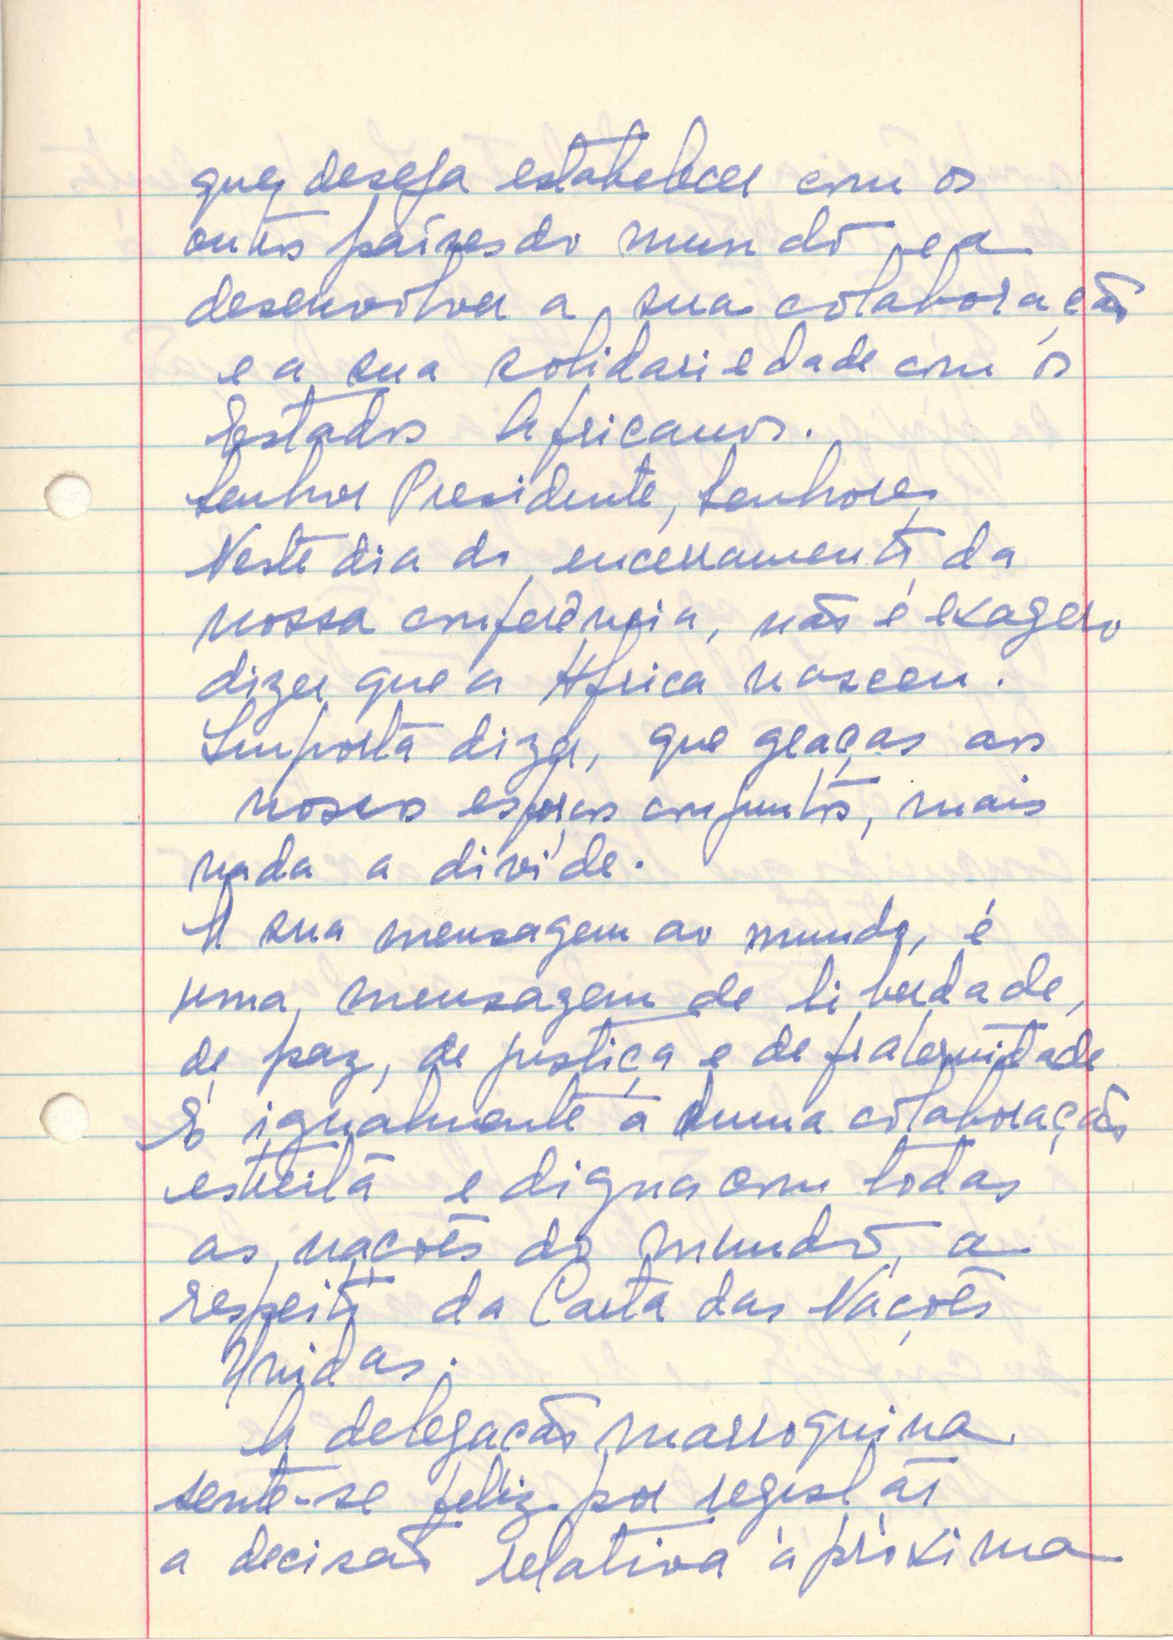 que deseja estabelecer com os
outros países do mundo e a
desenvolver a sua colaboração
e a sua solidariedade com os
Estados Africanos.
Senhor Presidente, Senhores
Neste dia do encerramento da
nossa conferência, não é exagero
dizer que a Africa nasceu.
Importa dizer, que graças aos
nossos esforços conjuntos, mais
nada a divide.
A sua mensagem ao mundo, é
uma mensagem de liberdade,
de paz, de justiça e de fraternidade
É igualmente a duma colaboração
estreita e digna com todas
as nações do mundo, a
respeito da Carta das Nações
Unidas.
A delegação marroquina
sente-se feliz por registar
a decisão relativa à próxima